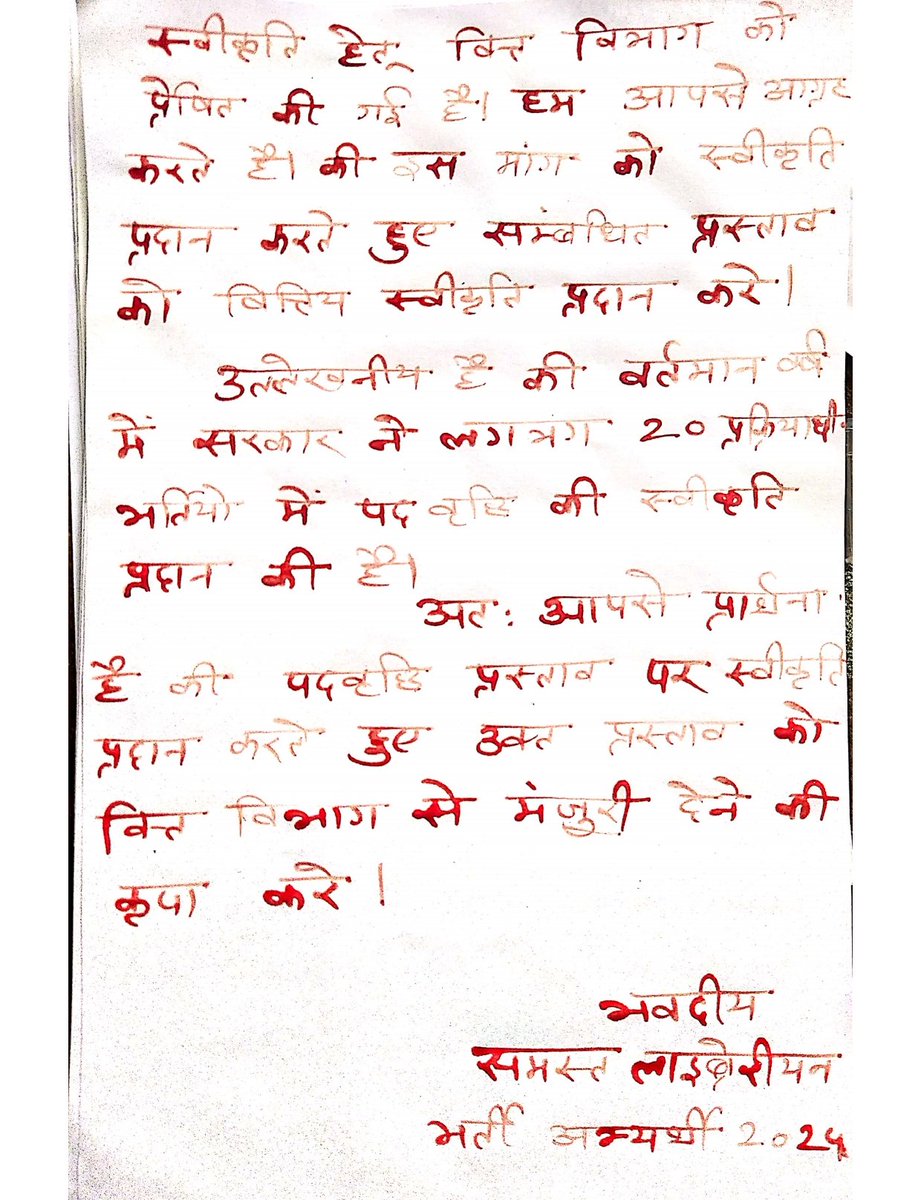 स्वीकृति हेतू वित्त विभाग को
प्रेषित की गई है। हम आपसे आग्रह
करते है। की इस मांग को स्वीकृति
प्रदान करते हुए सम्बधित प्रस्ताव
को वित्तिय स्वीकृति प्रदान करे।
उल्लेखनीय है की वर्तमान वर्ष
में सरकार ने लगभग 20 प्रक्रियाधी
भर्तियो में पद वृद्धि की स्वीकृति
प्रदान की है।
अत: आपसे प्रार्थना
है की पदवृद्धि प्रस्ताव पर स्वीकृति
प्रदान करते हुए उक्त प्रस्ताव को
वित्त विभाग से मंजुरी देने की
कृपा करे।
भवदीय
समस्त लाइब्रेरीयन
भर्ती अभ्यर्थी 2024